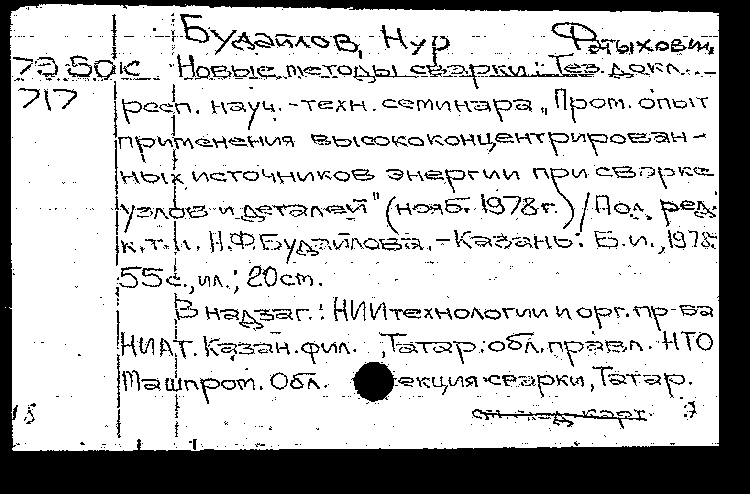 Будайлов, Нур Фатыхович
79.50к Новые методы сварки: Тез. докл.
717 респ. науч.-техн. семинара „Пром. опыт
применения высококонцентрирован-
ных источников энергии при сварке
узлов и деталей" (нояб. 1978 г.) / Под ред.
к.т.н. Н.Ф. Будайлова. - Казань: Б.и., 1978.
55 с., ил.; 20 cm.
В надзаг.: НИИ технологии и орг. пр-ва
НИАТ. Казан. фил., Татар. обл. правл. НТО
Машпром. Обл. секция сварки, Татар.
см. след. карт.